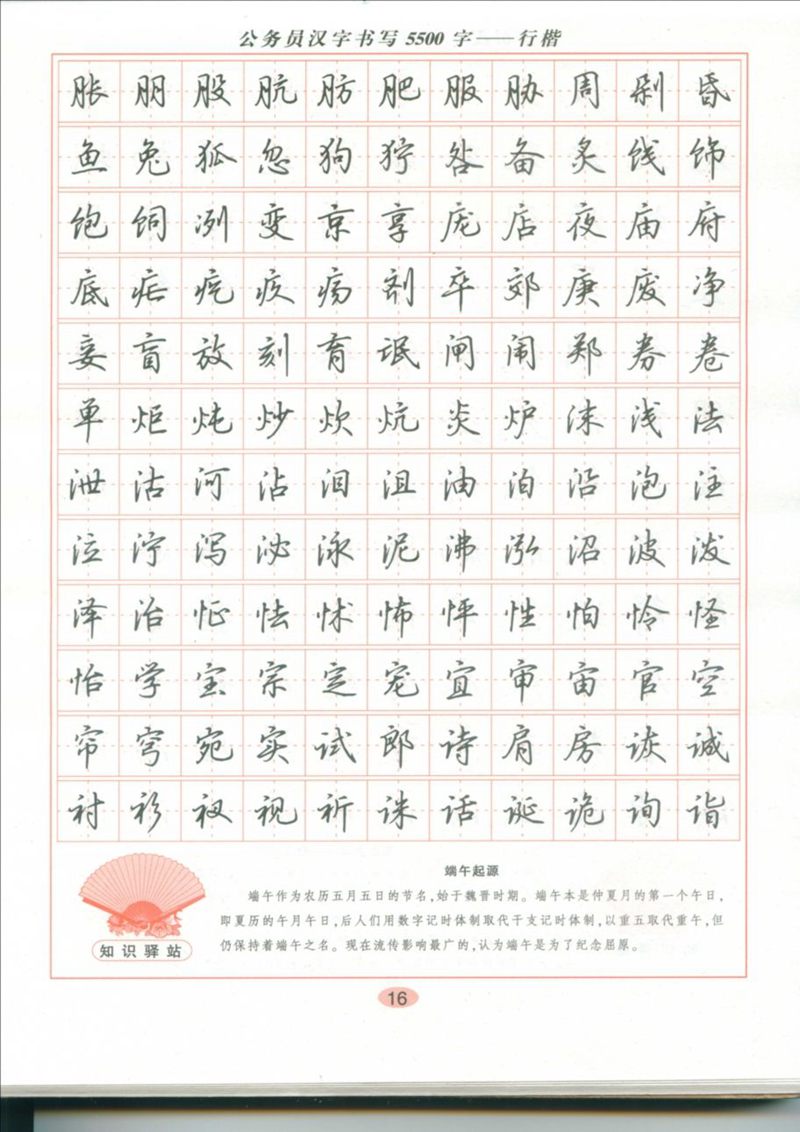 公务员汉字书写5500字——行楷
胀朋股肮肪肥服胁周剁昏
鱼兔狐忽狗狞咎备炙饯饰
饱饲冽变京享庞店夜庙府
底疟疙疚疡剂卒郊庚废净
妾盲放刻育氓闸闹郑券卷
单炬炖炒炊炕炎炉沫浅法
泄沽河沾泪沮油泊沿泡注
泣泞泻泌泳泥沸泓沼波泼
泽治怔怯怵怖怦性怕怜怪
怡学宝宗定宠宜审宙官空
帘穹宛实试郎诗肩房诙诚
衬衫衩视祈诛话诞诡询诣
端午起源
端午作为农历五月五日的节名，始于魏晋时期。端午本是仲夏月的第一个午日，
即夏历的午月午日，后人们用数字记时体制取代干支记时体制，以重五取代重午，但
仍保持着端午之名。现在流传影响最广的，认为端午是为了纪念屈原。
知识驿站
16